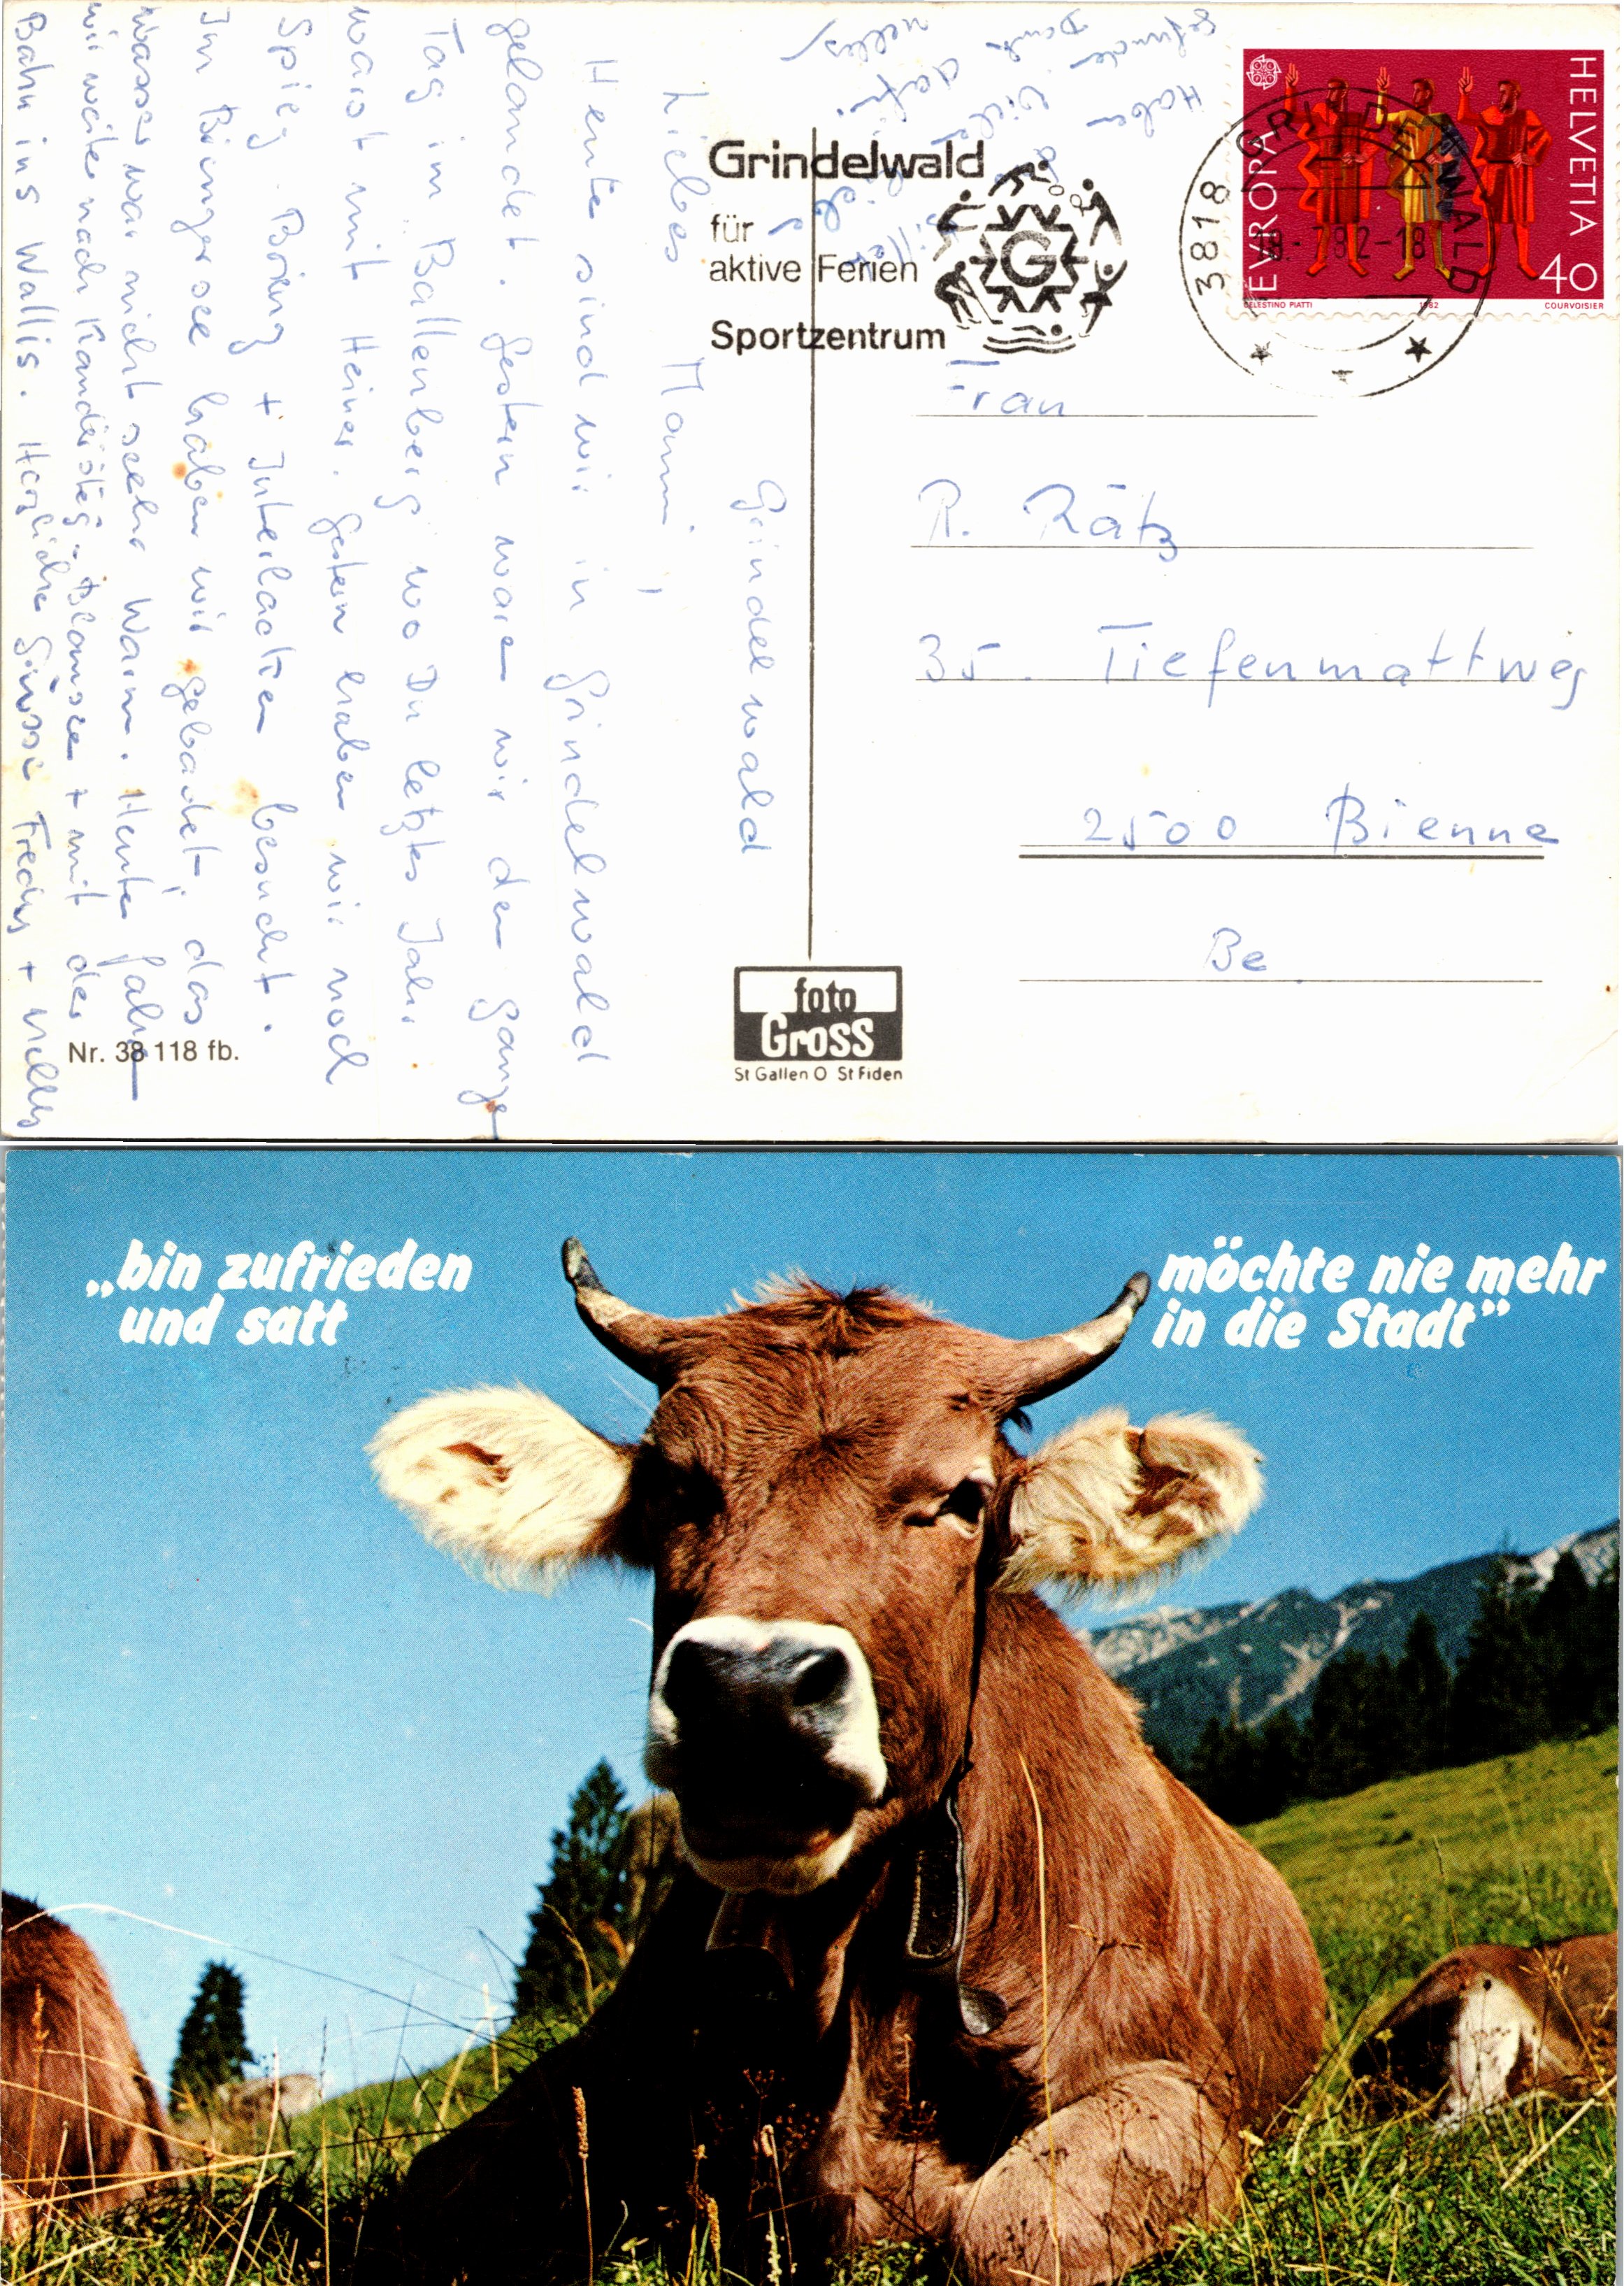 Grindelwald
Liebes Mammi,
Heute sind wir in Grindelwald
gelandet. Gestern waren wir den ganzen
Tag im Ballenberg wo Du letztes Jahr
warst mit Heiner. Gestern haben wir noch
Spiez, Brienz + Interlaken besucht.
Im Brienzersee haben wir gebadet, das
Wasser war nicht sehr warm. Heute fahren
wir weiter nach Kandersteg, Blausee + mit der
Bahn ins Wallis. Herzliche Grüsse Fredy + Nelly
Haben
vielen
Dank dafür.
Nelly
Grindelwald
für
aktive Ferien
Sportzentrum
G
3818 GRINDELWALD
18.-7.82-18
HELVETIA
EVROPA
40
CELESTINO PIATTI 1982 COURVOISIER
Frau
R. Rätz
35. Tiefenmattweg
2500 Bienne
Be
foto
Gross
St Gallen O St Fiden
Nr. 38 118 fb.
„bin zufrieden
und satt
möchte nie mehr
in die Stadt”